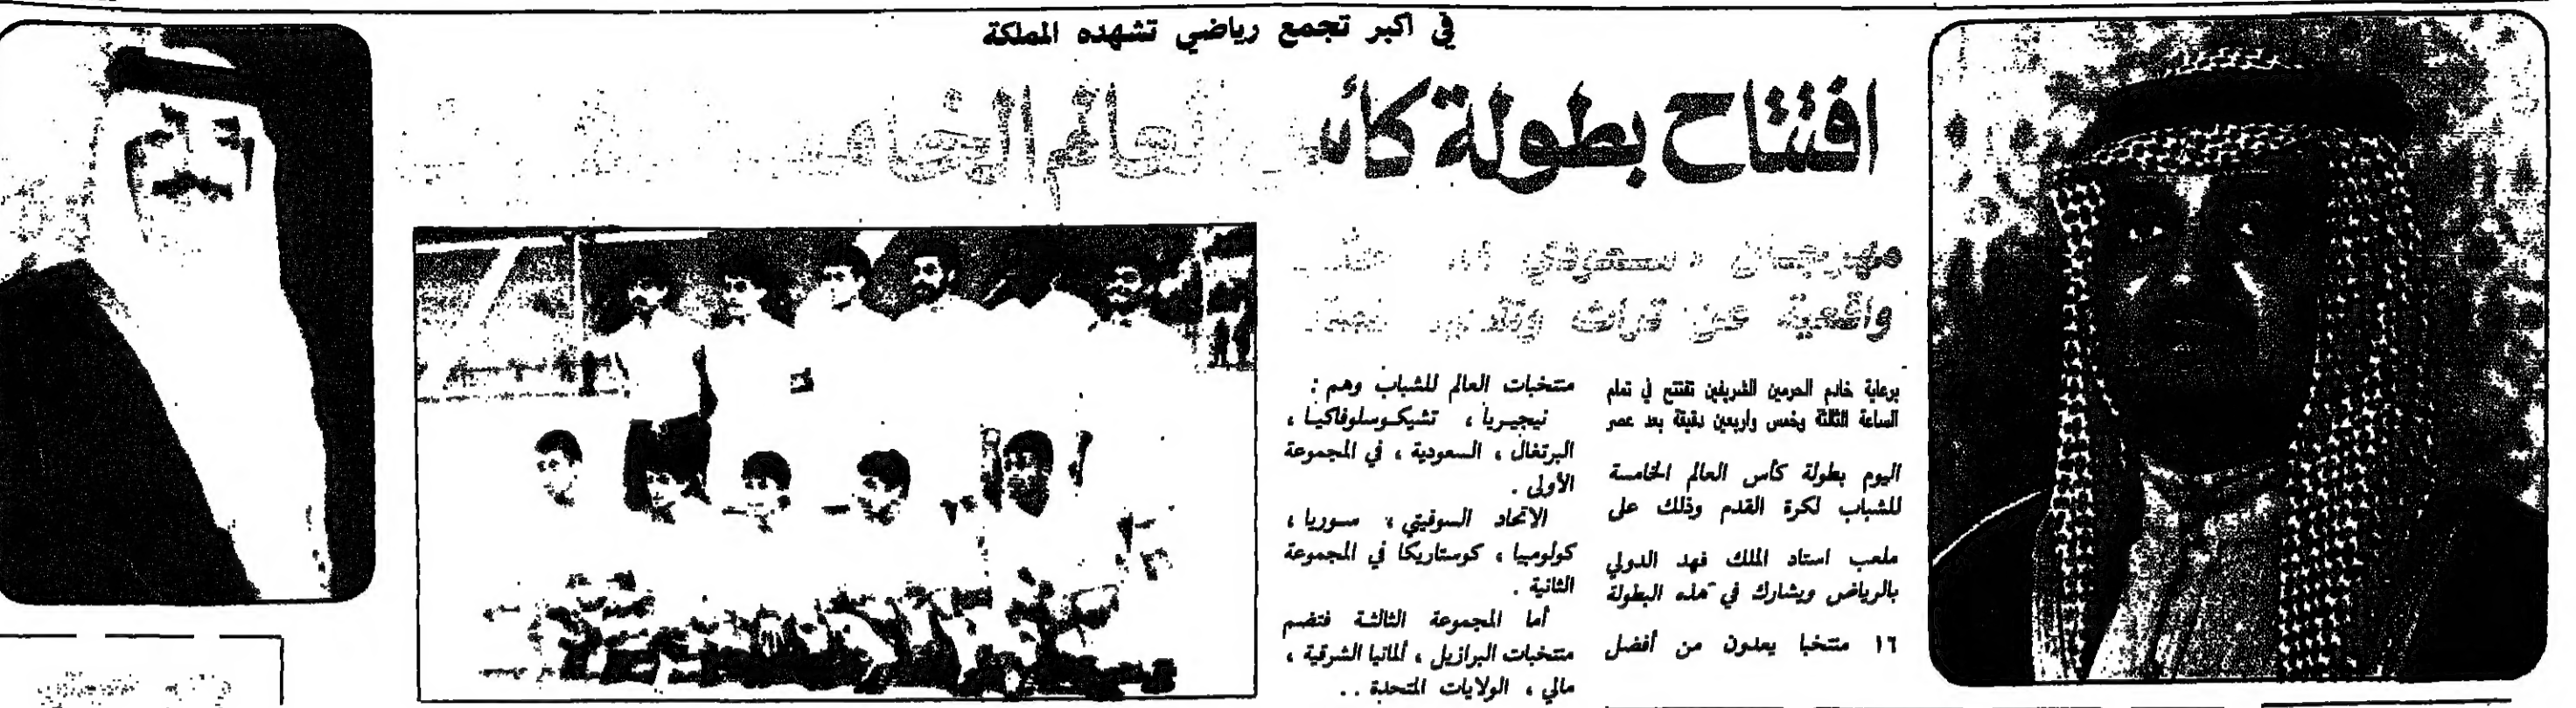 في اكبر تجمع رياضي تشهده المملكة
افتتاح بطولة كأس العالم الخامسة
مهرجان سعودي
واقعية عن تراث
برعاية خادم الحرمين الشريفين تفتتح في تمام
الساعة الثالثة وخمس واربعين دقيقة بعد عصر
اليوم بطولة كأس العالم الخامسة
للشباب لكرة القدم وذلك على
ملعب استاد الملك فهد الدولي
بالرياض ويشارك في هذه البطولة
١٦ منتخبا يعدون من أفضل
منتخبات العالم للشباب وهم :
نيجيريا ، تشيكوسلوفاكيا ،
البرتغال ، السعودية ، في المجموعة
الأولى .
الاتحاد السوفيتي ، سوريا ،
كولومبيا ، كوستاريكا في المجموعة
الثانية .
أما المجموعة الثالثة فتضم
منتخبات البرازيل ، ألمانيا الشرقية ،
مالي ، الولايات المتحدة . .